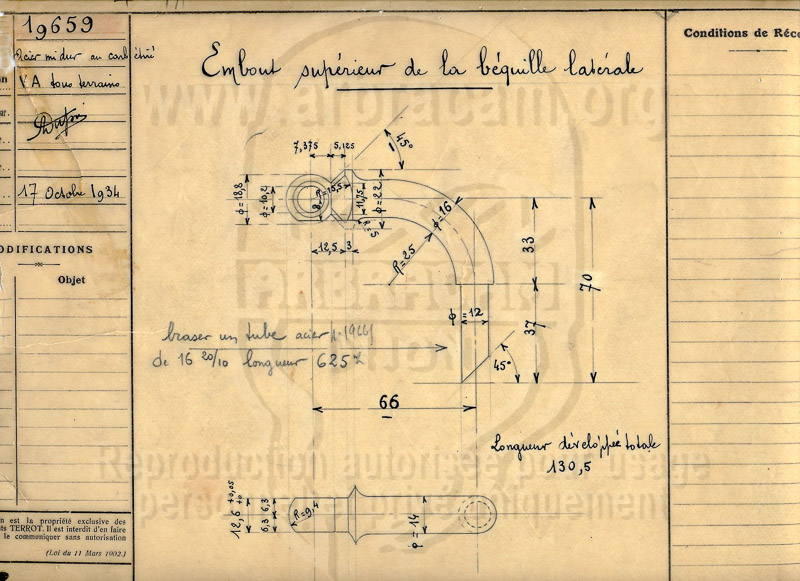 19659
Acier mi dur au carb étiré
VA tous terrains
17 Octobre 1934
ODIFICATIONS
Objet
on est la propriété exclusive des
ts TERROT. Il est interdit d'en faire
le communiquer sans autorisation
(Loi du 11 Mars 1902.)
Embout supérieur de la béquille latérale
Conditions de Réce
www.arbracam.org
7,375
5,125
45°
φ=18,8
φ=10,2
8
R=15,5
11,75
φ=22
φ=16
12,5
3
R=25
33
70
φ=12
37
45°
braser un tube acier
de 16 20/10 longueur 625
66
Longueur développée totale
130,5
ARBRACAM
DIJON
Reproduction autorisée pour usage
personnel et privé uniquement
12,6 +0,05 +0
6,3 6,3
R=9,4
φ=14